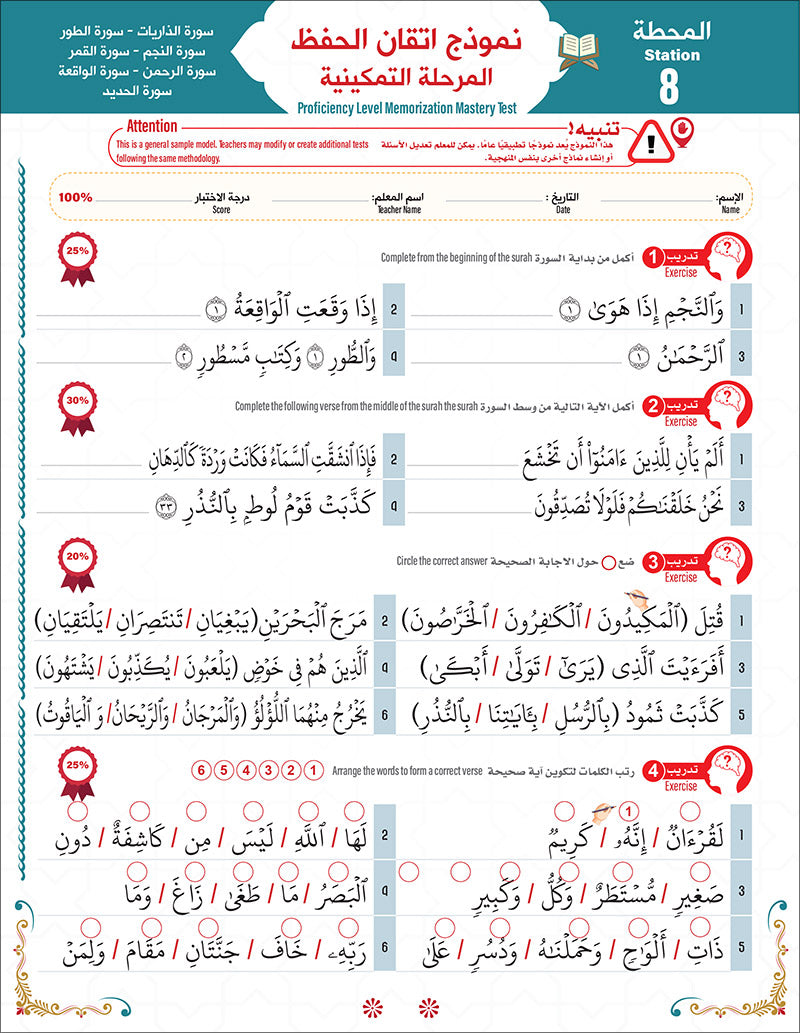 المحطة
Station
8
نموذج اتقان الحفظ
المرحلة التمكينية
Proficiency Level Memorization Mastery Test
سورة الذاريات - سورة الطور
سورة النجم - سورة القمر
سورة الرحمن - سورة الواقعة
سورة الحديد
تنبيه!
هذا النموذج يُعد نموذجًا تطبيقيًا عامًا. يمكن للمعلم تعديل الأسئلة
أو إنشاء نماذج أخرى بنفس المنهجية.
Attention
This is a general sample model. Teachers may modify or create additional tests
following the same methodology.
الإسم: التاريخ : اسم المعلم: درجة الاختبار 100%
Name Date Teacher Name Score
تدريب 1 أكمل من بداية السورة Complete from the beginning of the surah 25%
Exercise
1 وَٱلنَّجۡمِ إِذَا هَوَىٰ ١ 2 إِذَا وَقَعَتِ ٱلۡوَاقِعَةُ ١
3 ٱلرَّحۡمَٰنُ ١ ٩ وَٱلطُّورِ ١ وَكِتَٰبٖ مَّسۡطُورٖ ٢
تدريب 2 أكمل الآية التالية من وسط السورة Complete the following verse from the middle of the surah the surah 30%
Exercise
1 أَلَمۡ يَأۡنِ لِلَّذِينَ ءَامَنُوٓاْ أَن تَخۡشَعَ 2 فَإِذَا ٱنشَقَّتِ ٱلسَّمَآءُ فَكَانَتۡ وَرۡدَةٗ كَٱلدِّهَانِ
3 نَحۡنُ خَلَقۡنَٰكُمۡ فَلَوۡلَا تُصَدِّقُونَ ٩ كَذَّبَتۡ قَوۡمُ لُوطِۭ بِٱلنُّذُرِ ٣٣
تدريب 3 ضع حول الاجابة الصحيحة Circle the correct answer 20%
Exercise
1 قُتِلَ (ٱلۡمَكِيدُونَ / ٱلۡكَٰفِرُونَ / ٱلۡخَرَّٰصُونَ) 2 مَرَجَ ٱلۡبَحۡرَيۡنِ (يَبۡغِيَانِ / تَنتَصِرَانِ / يَلۡتَقِيَانِ)
3 أَفَرَءَيۡتَ ٱلَّذِي (يَرَىٰٓ / تَوَلَّىٰ / أَبۡكَىٰ) ٩ ٱلَّذِينَ هُمۡ فِي خَوۡضٖ (يَلۡعَبُونَ / يُكَذِّبُونَ / يَشۡتَهُونَ)
5 كَذَّبَتۡ ثَمُودُ (بِٱلرُّسُلِ / بِـَٔايَٰتِنَا / بِٱلنُّذُرِ) 6 يَخۡرُجُ مِنۡهُمَا ٱللُّؤۡلُؤُ (وَٱلۡمَرۡجَانُ / وَٱلرَّيۡحَانُ / وَ ٱلۡيَاقُوتُ)
تدريب 4 رتب الكلمات لتكوين آية صحيحة Arrange the words to form a correct verse 1 2 3 4 5 6 25%
Exercise
1
1 لَقُرۡءَانٞ / إِنَّهُۥ / كَرِيمٞ 2 لَهَا / ٱللَّهِ / لَيۡسَ / مِن / كَاشِفَةٌ / دُونِ
3 صَغِيرٖ / مُّسۡتَطَرٌ / وَكُلُّ / وَكَبِيرٖ ٩ ٱلۡبَصَرُ / مَا / طَغَىٰ / زَاغَ / وَمَا
5 ذَاتِ / أَلۡوَٰحٖ / وَحَمَلۡنَٰهُ / وَدُسُرٖ / عَلَىٰ 6 رَبِّهِۦ / خَافَ / جَنَّتَانِ / مَقَامَ / وَلِمَنۡ